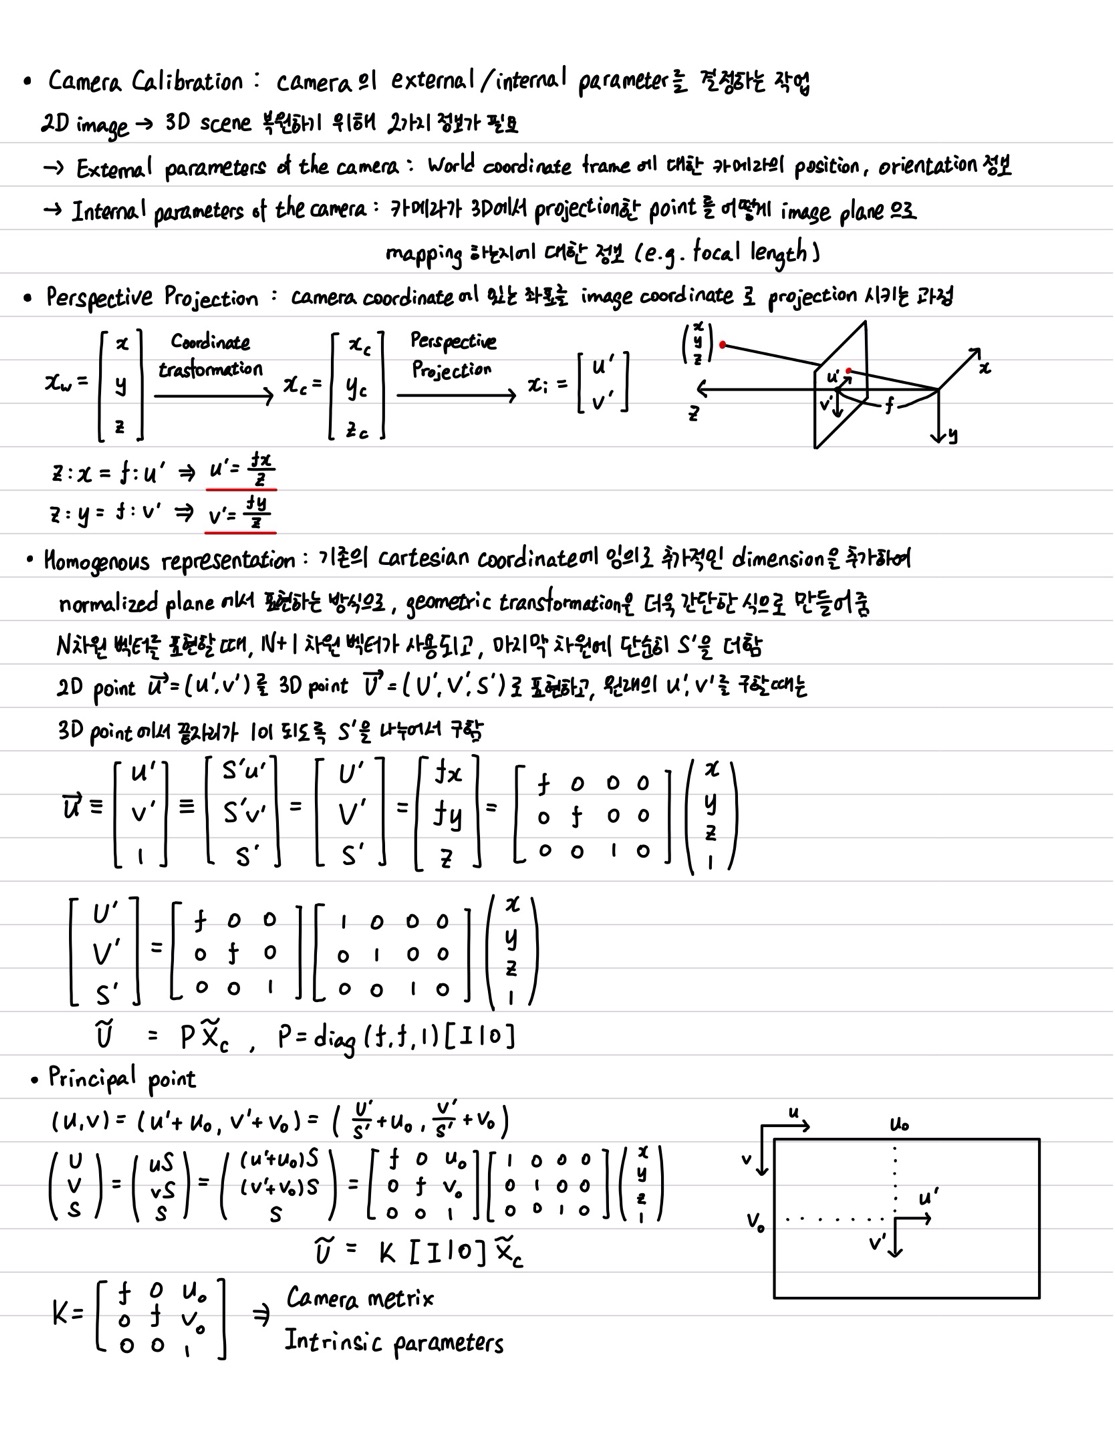 • Camera Calibration : camera의 external/internal parameter를 결정하는 작업
2D image → 3D scene 복원하기 위해 2가지 정보가 필요
→ External parameters of the camera : World coordinate frame에 대한 카메라의 position, orientation 정보
→ Internal parameters of the camera : 카메라가 3D에서 projection한 point를 어떻게 image plane으로
mapping 하는지에 대한 정보 (e.g. focal length)
• Perspective Projection : camera coordinate에 있는 좌표를 image coordinate로 projection 시키는 과정
x_w = [x y z] Coordinate trasformation → x_c = [x_c y_c z_c] Perspective Projection → x_i = [u' v']
(x y z) u' v' f x y z
z : x = f : u' ⇒ u' = fx/z
z : y = f : v' ⇒ v' = fy/z
• Homogenous representation : 기존의 cartesian coordinate에 임의로 추가적인 dimension을 추가하여
normalized plane에서 표현하는 방식으로, geometric transformation은 더욱 간단한 식으로 만들어줌
N차원 벡터를 표현할 때, N+1 차원 벡터가 사용되고, 마지막 차원에 단순히 S'을 더함
2D point u⃗ = (u', v')를 3D point U⃗ = (U', V', S')로 표현하고, 원래의 u', v'를 구할때는
3D point에서 끝자리가 1이 되도록 S'을 나누어서 구함
u⃗ ≡ [u' v' 1] ≡ [S'u' S'v' S'] = [U' V' S'] = [fx fy z] = [f 0 0 0; 0 f 0 0; 0 0 1 0] (x y z 1)
[U' V' S'] = [f 0 0; 0 f 0; 0 0 1] [1 0 0 0; 0 1 0 0; 0 0 1 0] (x y z 1)
Ũ = P X̃_c , P = diag(f, f, 1) [I | 0]
• Principal point
(u, v) = (u' + u₀, v' + v₀) = (U'/S' + u₀, V'/S' + v₀)
(U V S) = (uS vS S) = ((u'+u₀)S (v'+v₀)S S) = [f 0 u₀; 0 f v₀; 0 0 1] [1 0 0 0; 0 1 0 0; 0 0 1 0] (x y z 1)
Ũ = K [I | 0] X̃_c
K = [f 0 u₀; 0 f v₀; 0 0 1] ⇒ Camera metrix
Intrinsic parameters
u u₀
v
v₀ u'
v'